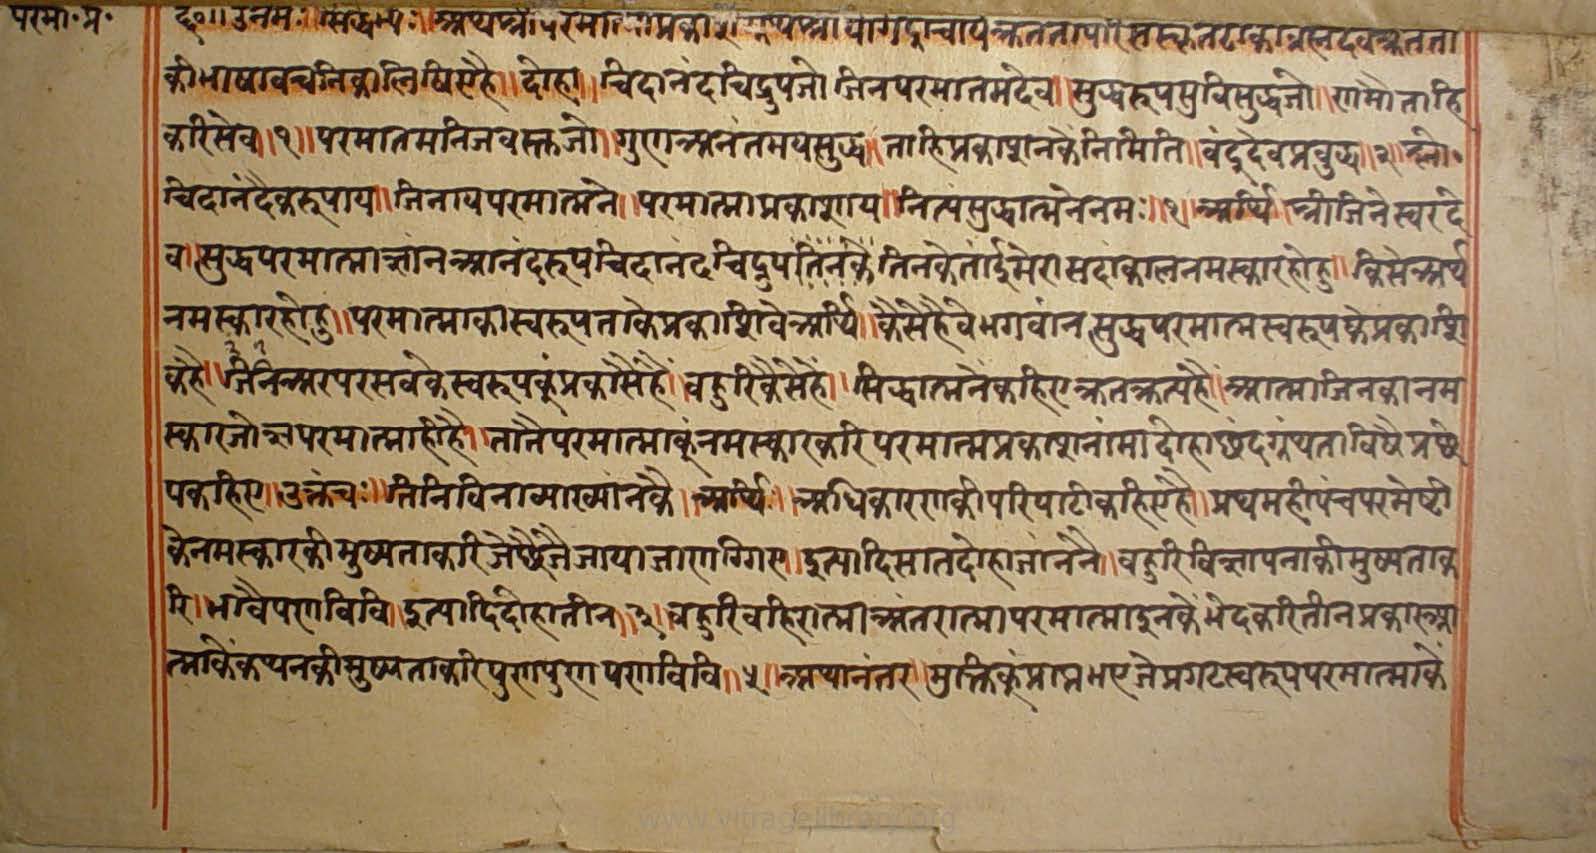 परमा॰प्र॰
द॥०॥ उं नमः॥ सिद्धेभ्यः॥ अथ श्री परमात्माप्रकाश ग्रंथ श्री योगेंद्राचार्यकृत तापरि संस्कृतटीका ब्रह्मदेवकृत ता
की भाषावचनिका लिषिए है॥ दोहा॥ चिदानंदचिद्रुप जो जिनपरमातमदेव॥ सुद्धरूपसुविसुद्ध जो॥ णमौ ताहि
करि सेव॥१॥ परमातम निजवस्त जो॥ गुणअनंतमयसुद्ध॥ ताहि प्रकाशनकै निमिति॥ वंदू देवप्रबुद्ध॥२॥ श्लो॰
चिदानंदैकरूपाय॥ जिनाय परमात्मने॥ परमात्माप्रकाशाय॥ नित्यं सुद्धात्मने नमः॥१॥ अर्थि॥ श्री जिनेस्वरदे
व॥ सुद्धपरमात्मा ज्ञानआनंदरूप चिदानंद चिद्रुप तिनकै तिनके तांई मेरा सदाकाल नमस्कार होहु॥ किसे अर्थि
नमस्कार होहु॥ परमात्माका स्वरूप ताके प्रकाशिवे अर्थि॥ कैसे है वे भगवांन सुद्धपरमात्मस्वरूपके प्रकाशि
क है॥ जिनि अर पर सबके स्वरूपकुं प्रकासै है॥ बहुरि कैसे है॥ सिद्धात्मने कहिए कृतकृत्य है॥ आत्मा जिनका नम
स्कार जोग्य परमात्मा ही है॥ तातै परमात्माकूं नमस्कार करि परमात्मप्रकाशनांमा दोहाछंद ग्रंथ ता विषै प्रछे
प कहिए॥ उक्तंच॥ तिनि विना व्याख्यांनकै॥ अर्थि॥ अधिकारणकी परिपाटी कहिए है॥ प्रथम ही पंचपरमेष्टी
के नमस्कारकी मुष्यता करि जे छै जै जाया जाणग्गिए॥ इत्यादि सात दोहा जांनने॥ बहुरि विज्ञापनाकी मुष्यता क
रि॥ भावै पणविवि॥ इत्यादि दोहा तीन॥३॥ बहुरि बहिरात्मा अंतरात्मा परमात्मा इनके भेद करि तीन प्रकार आ
त्माके कथनकी मुष्यता करि पुण पुण पणविवि॥५॥ अथानंतर॥ मुक्तिकूं प्राप्त भए जे प्रगटस्वरूप परमात्माके
www.vitragelibrary.org